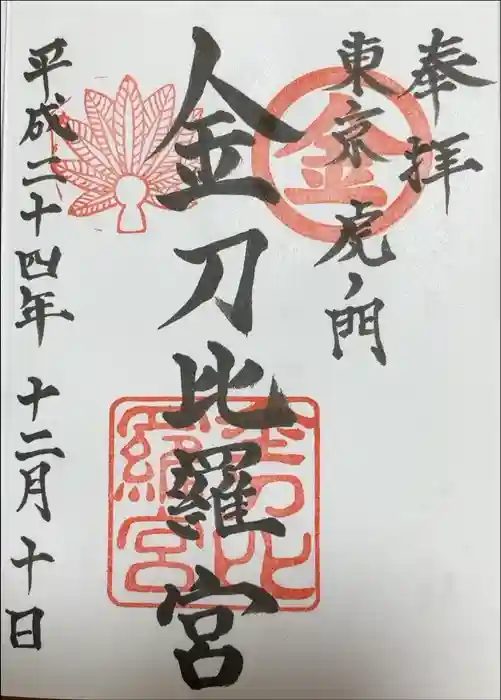 奉拝
東京虎ノ門
金
金刀比羅宮
金刀比羅宮
平成二十四年 十二月 十日